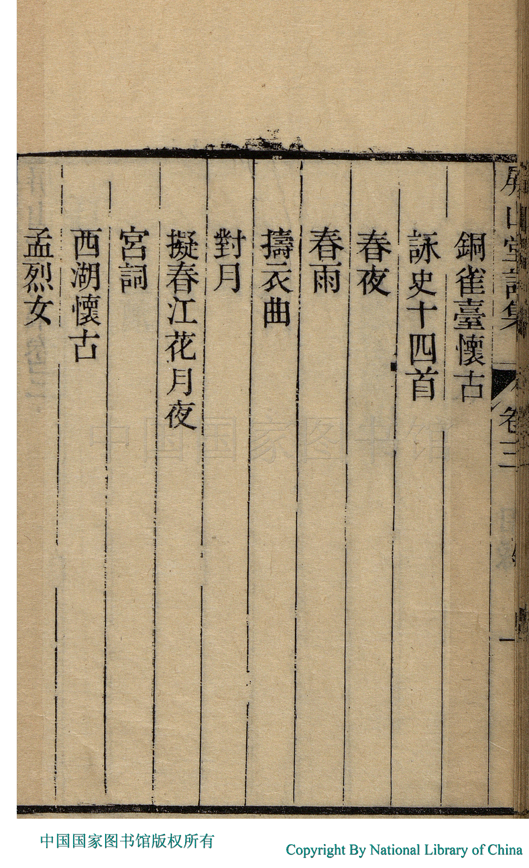 屏山堂詩集
卷三
一
銅雀臺懷古
詠史十四首
春夜
春雨
擣衣曲
對月
擬春江花月夜
宮詞
西湖懷古
孟烈女
中国国家图书馆
中国国家图书馆版权所有
Copyright By National Library of China